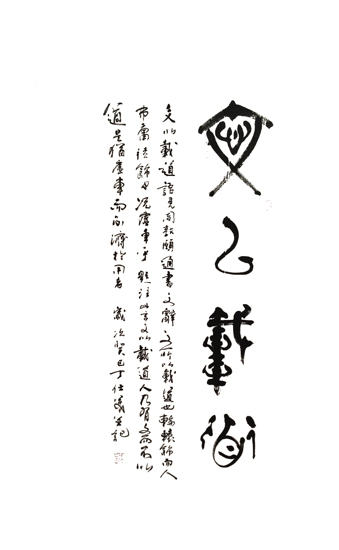 文以載道
文以載道語見周敦頤通書文辭文所以載道也輪轅飾而人
弗庸徒飾也況虛車乎題注此言文以載道人乃有文而不以
道是猶虛車而不濟於用者 歲次癸巳丁仕